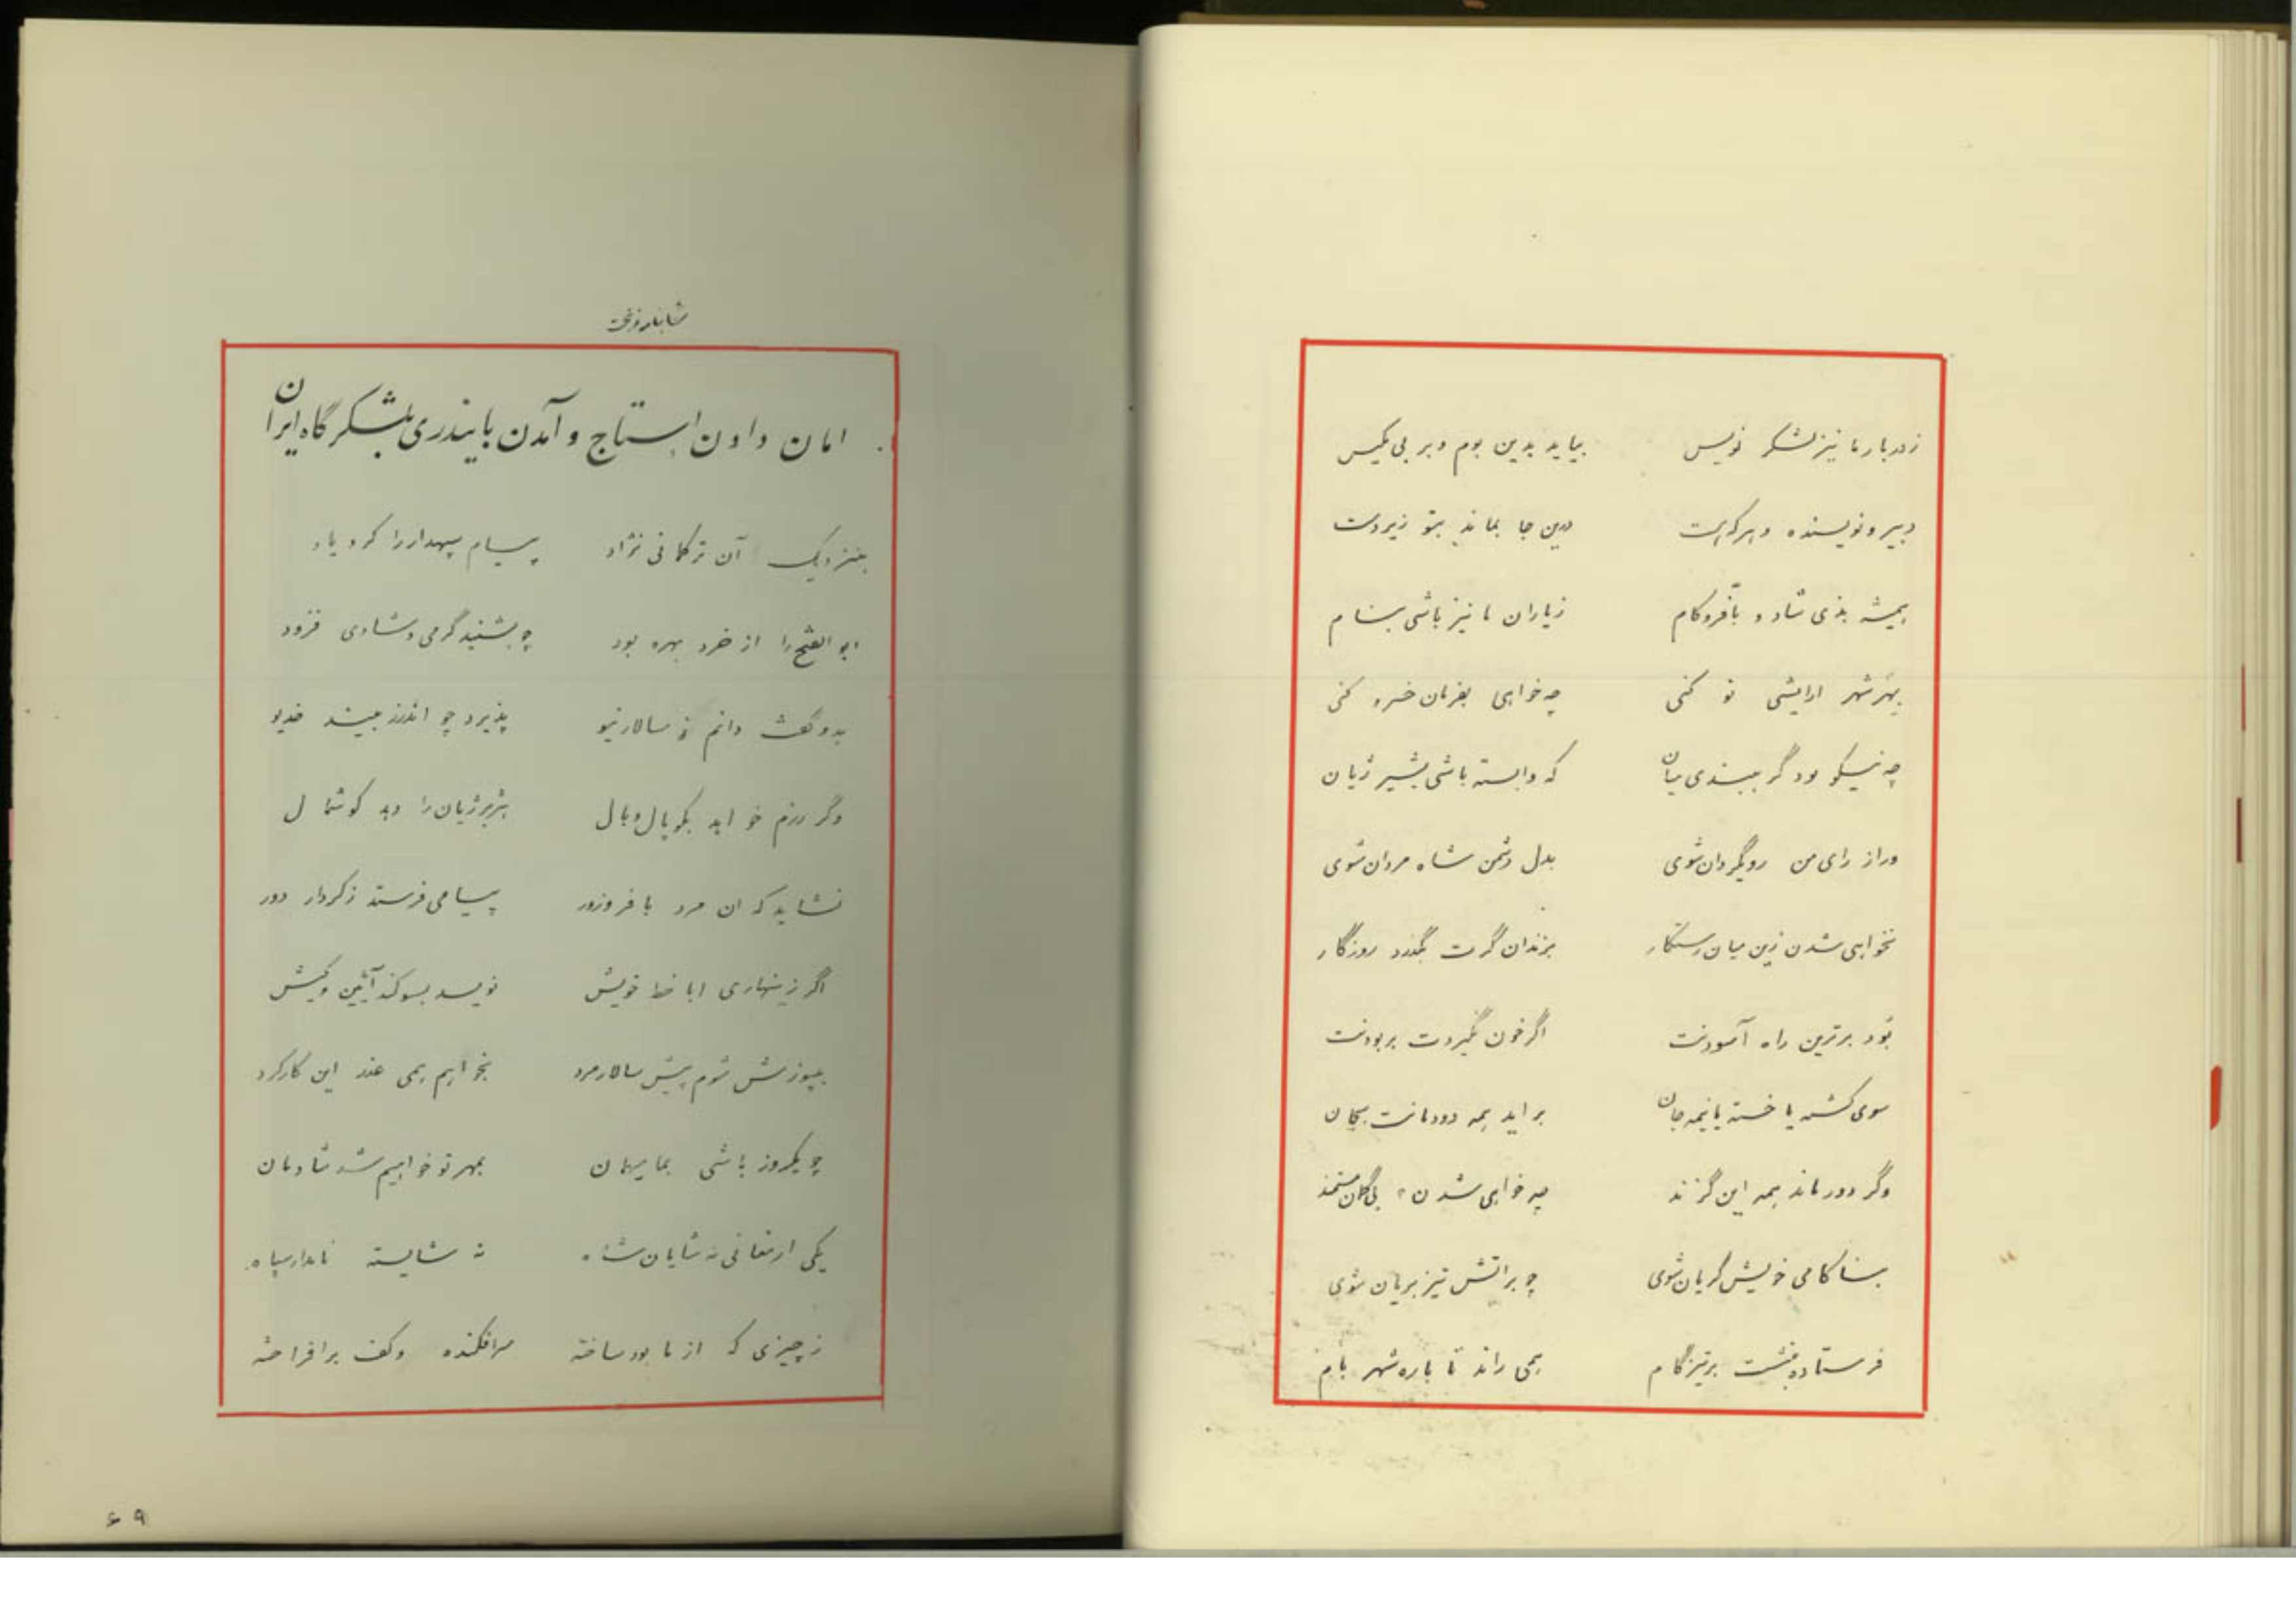 ز دربار ما نیز لشکر نویس بیاید بدین بوم و بر بی مکیس
دبیر و نویسنده و هر که هست درین جا بماند بتو زیردست
همیشه بذی شاد و با فر و کام ز یاران ما نیز باشی بنام
بهر شهر ارایشی نو کنی چه خواهی بفرمان خسرو کنی
چه نیکو بود گر ببندی میان که وابسته باشی بشیر ژیان
ور از رای من رویگردان شوی بدل دشمن شاه مردان شوی
نخواهی شدن زین میان رستگار بزندان گرت بگذرد روزگار
بود برترین راه آسودنت اگر خون نگیردت بر بودنت
سوی کشته یا خسته یا نیمه جان براید همه دودمانت بجان
وگر دور ماند همه این گزند چه خواهی شدن؟ بی گمان مستمند
بنا کامی خویش گریان شوی چو بر اتش تیز بریان شوی
فرستاده بنشست بر تیزگام همی راند تا باره شهر بام
امان دادن استاج و آمدن بایندری بلشکرگاه ایران
بنزدیک آن ترکمانی نژاد پیام سپهدار را کرد یاد
ابوالفتح را از خرد بهره بود چو بشنید گرمی و شادی فزود
بدو گفت دانم که سالار نیو پذیرد چو اندرز بیند خدیو
وگر رزم خواهد بکوپال و بال هژبر ژیان را دهد گوشمال
نشاید که ان مرد با فر و زور پیامی فرستد ز کردار دور
اگر زینهاری ابا خط خویش نویسد بسوگند آیین و کیش
بپوزش شوم پیش سالار مرد بخواهم همی عذر این کارکرد
چو یکروز باشی بما میهمان بمهر تو خواهیم شد شادمان
یکی ارمغانی نه شایان شاه نه شایسته نامدار سپاه
ز چیزی که از ما بود ساخته سرافکنده و کف برافراخته
۶۹